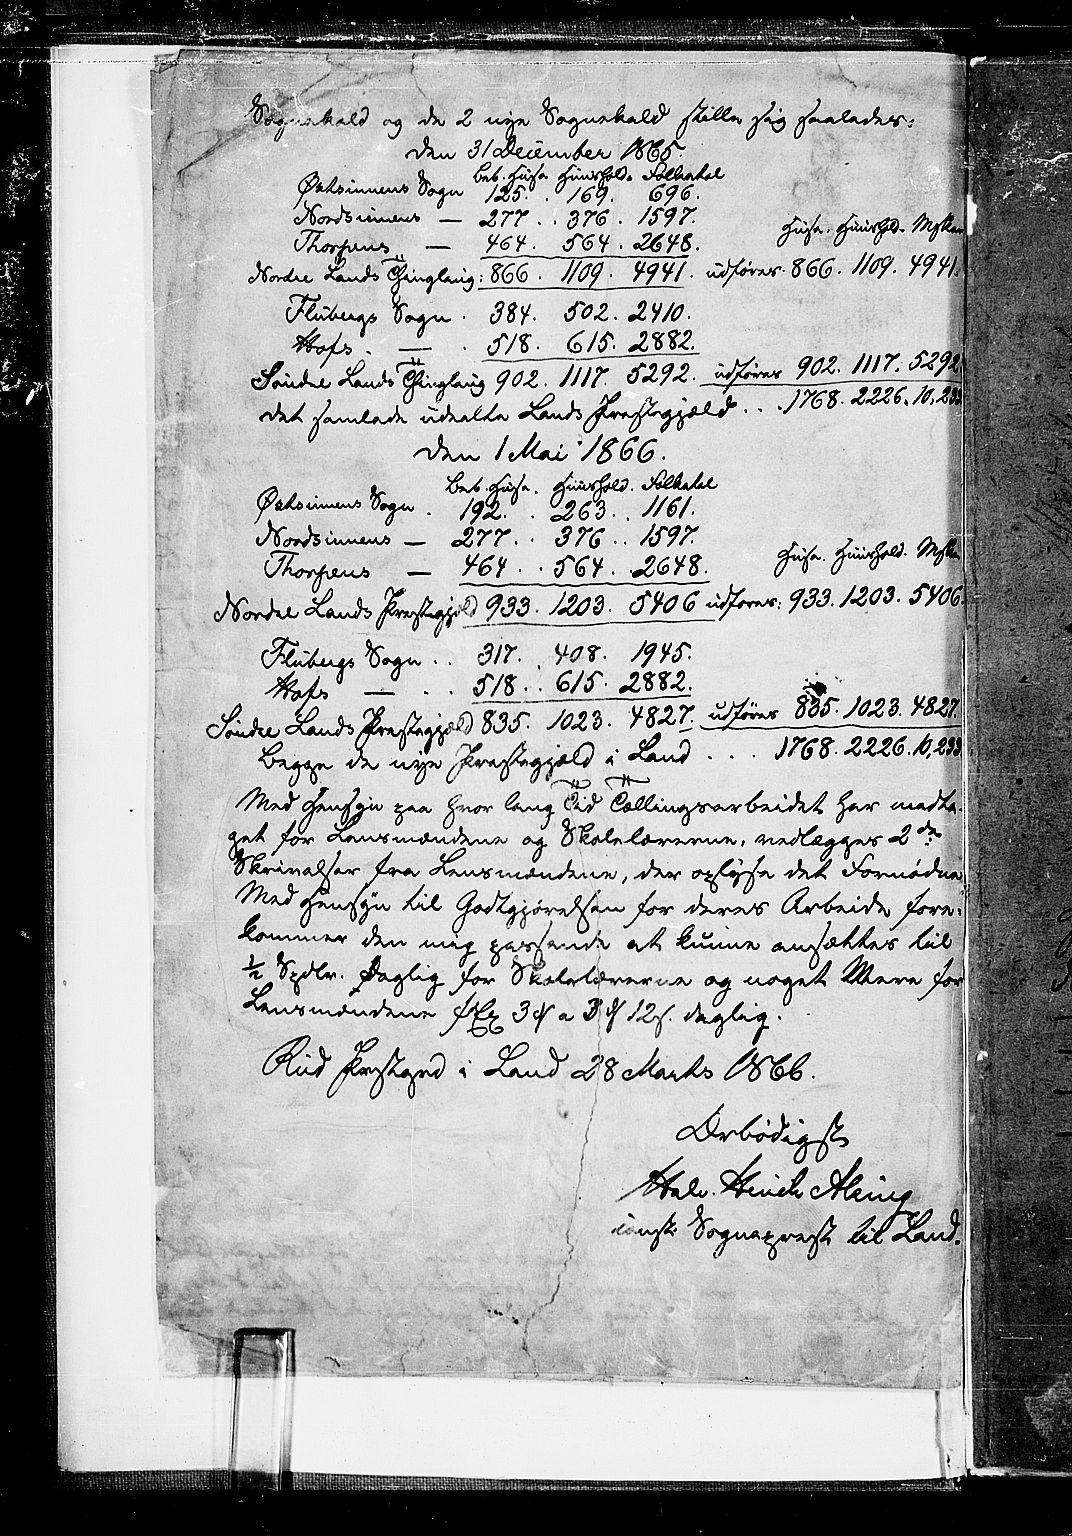 Sognekald og de 2 nye Sognekald stille sig saaledes:
den 31 December 1865.
Beb. Huse Huushold. Folketal
Østsinnens Sogn 125. . 169. 696.
Nordsinnens — 277. . 376. 1597.
Huse. Huushold. Msker
Thorpens — 464. 564. 2648.
Nordre Lands Thinglaug: 866. 1109. 4941. udføres 866. 1109. 4941.
Flubergs Sogn . 384. 502. 2410.
Hofs . — . 518. 615. 2882.
Søndre Lands Thinglaug 902. 1117. 5292. udføres 902. 1117. 5292
det samlede udeelte Lands Præstegjæld . . . 1768. 2226. 10,233
den 1 Mai 1866.
Beb. Huse. Huushold. Folketal
Østsinnens Sogn . 192. . 263. . 1161.
Nordsinnens — 277. . 376 . . 1597.
Huse. Huushold. Msker
Thorpens — 464 . . 564 . . 2648.
Nordre Lands Præstegjeld 933. 1203. 5406 udføres: 933. 1203. 5406.
Flubergs Sogn . . 317. . 408. 1945.
Hofs — . . 518. . 615. 2882.
Søndre Lands Præstegjæld 835. 1023. 4827. udføres 835. 1023. 4827.
Begge de nye Præstegjæld i Land . . . 1768. 2226. 10,233
Med Hensyn paa hvor lang Tid Tællingsarbeidet har medta-
get for Lensmændene og Skolelærerne, vedlægges 2de
Skrivelser fra Lensmændene, der oplyse det Fornødne
Med Hensyn til Godtgjørelsen for deres Arbeide fore-
kommer den mig passende at kunne ansættes til
½ Spdlr. Daglig for Skolelærerne og noget Mere for
Lensmændene f.Ex 3 ₰ a 3 ₰ 12 s. daglig.
Rud Præstgrd i Land 28 Marts 1866.
Ærbødigst
Halv. Hench
const. Sogneprest til Land.